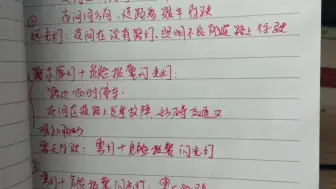 ①
夜间同方向,近距离跟车行驶
远光灯:夜间在没有路灯、照明不良的道路上行驶
示廓灯+危险报警闪光灯:
路边临时停车
夜间在道路上发生故障,妨碍交通又
难以移动
雾天行驶:雾灯+危险报警闪光灯
雾灯+危险报警闪光灯